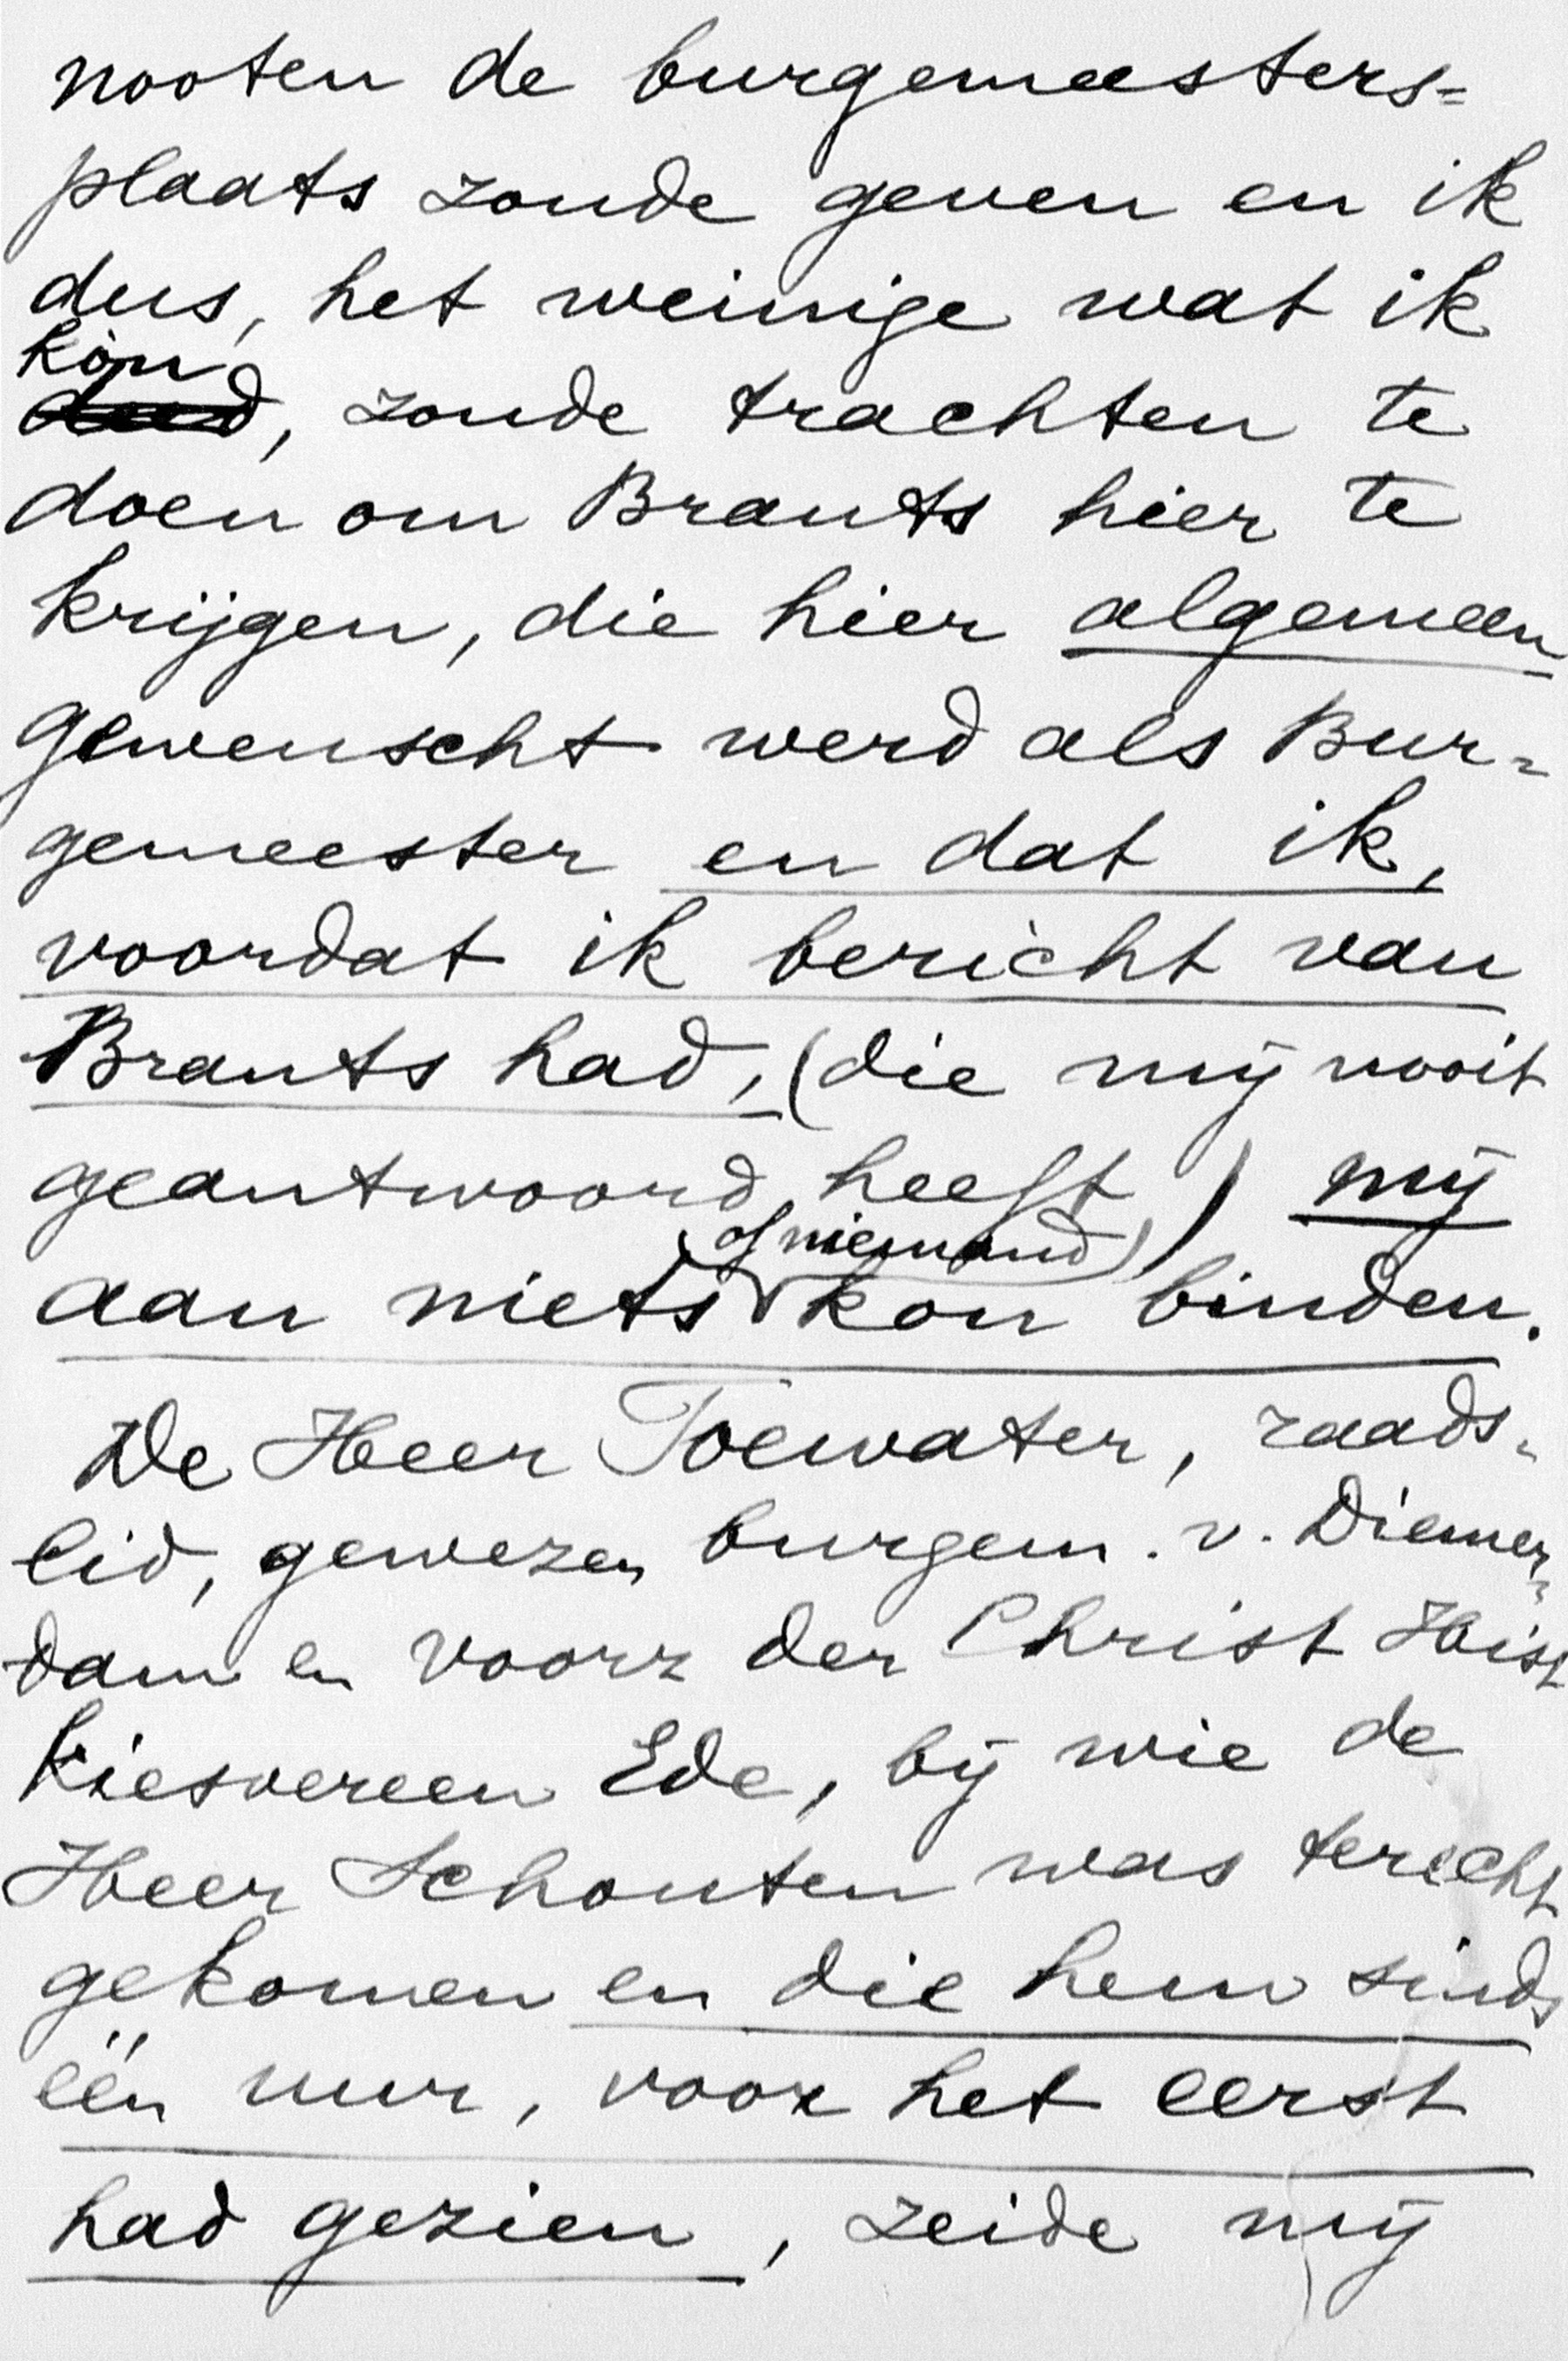 nooten de burgemeesters=
plaats zoude geven en ik
dus, het weinige wat ik
kon
deed, zoude trachten te
doen om Brants hier te
krijgen, die hier algemeen
gewenscht werd als Bur-
gemeester en dat ik,
voordat ik bericht van
Brants had, (die mij nooit
geantwoord heeft) mij
(of niemand)
aan niets kon binden.
De Heer Toewater, raads-
lid, gewezen burgem. v. Diemer-
dam en voorz der Christ Hist
Kiesvereen Ede, bij wie de
Heer Schouten was terecht
gekomen en die hem sinds
één uur, voor het eerst
had gezien, zeide mij